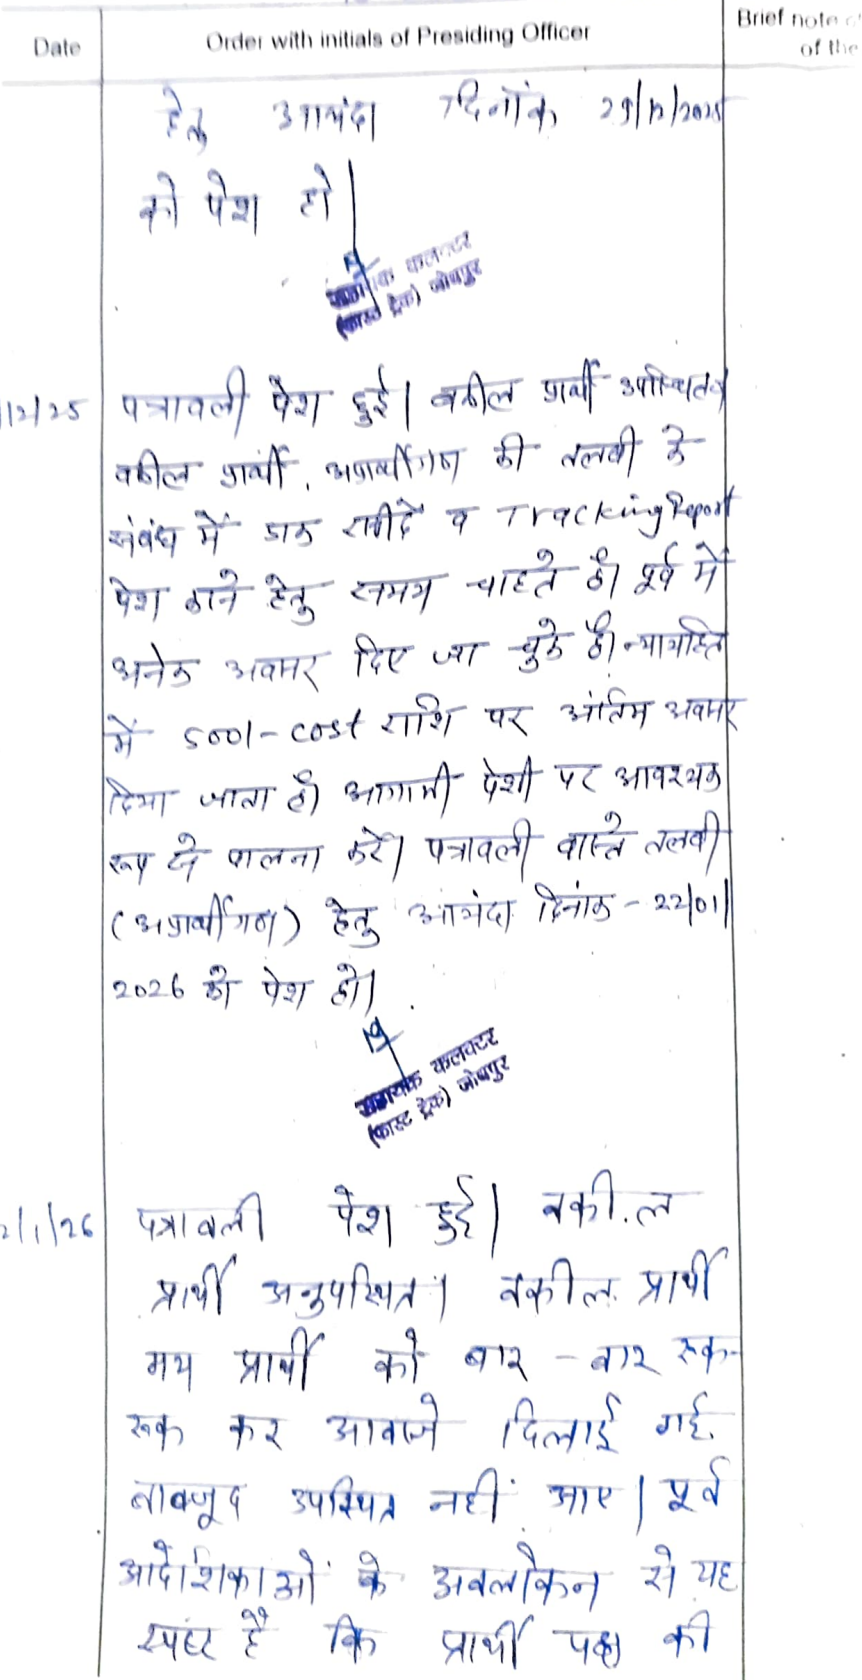 Date
Order with initials of Presiding Officer
Brief note
of the
हेतु आयंदा दिनांक 29/12/2025
को पेश हो।
सहायक कलक्टर
(फास्ट ट्रेक) जोधपुर
12/25 पत्रावली पेश हुई। वकील प्रार्थी उपस्थित।
वकील प्रार्थी, अप्रार्थीगण की तलबी के
संबंध में डाक रसीदें व Tracking Report
पेश करने हेतु समय चाहते है। पूर्व में
अनेक अवसर दिए जा चुके है। न्यायहित
में 500/- cost राशि पर अंतिम अवसर
दिया जाता है। आगामी पेशी पर आवश्यक
रूप से पालना करें। पत्रावली वास्ते तलबी
(अप्रार्थीगण) हेतु आयंदा दिनांक - 22/01/
2026 को पेश हो।
सहायक कलक्टर
(फास्ट ट्रेक) जोधपुर
2/1/26 पत्रावली पेश हुई। वकील
प्रार्थी अनुपस्थित। वकील प्रार्थी
मय प्रार्थी को बार - बार रूक-
रूक कर आवाजे दिलाई गई.
बावजूद उपस्थित नहीं आए। पूर्व
आदेशिकाओं के अवलोकन से यह
स्पष्ट है कि प्रार्थी पक्ष की